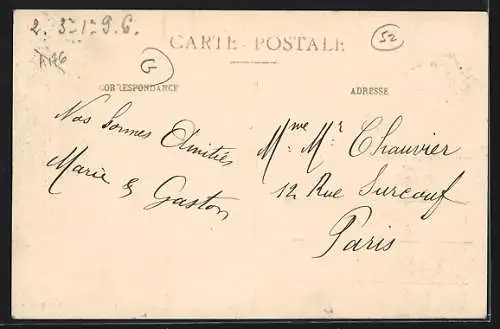 2. 3-1-9.6.
A176
CARTE POSTALE
52
G
CORRESPONDANCE
ADRESSE
Nos bonnes Amitiés
Marie & Gaston
Mme Mr Chauvier
12 Rue Surcouf
Paris